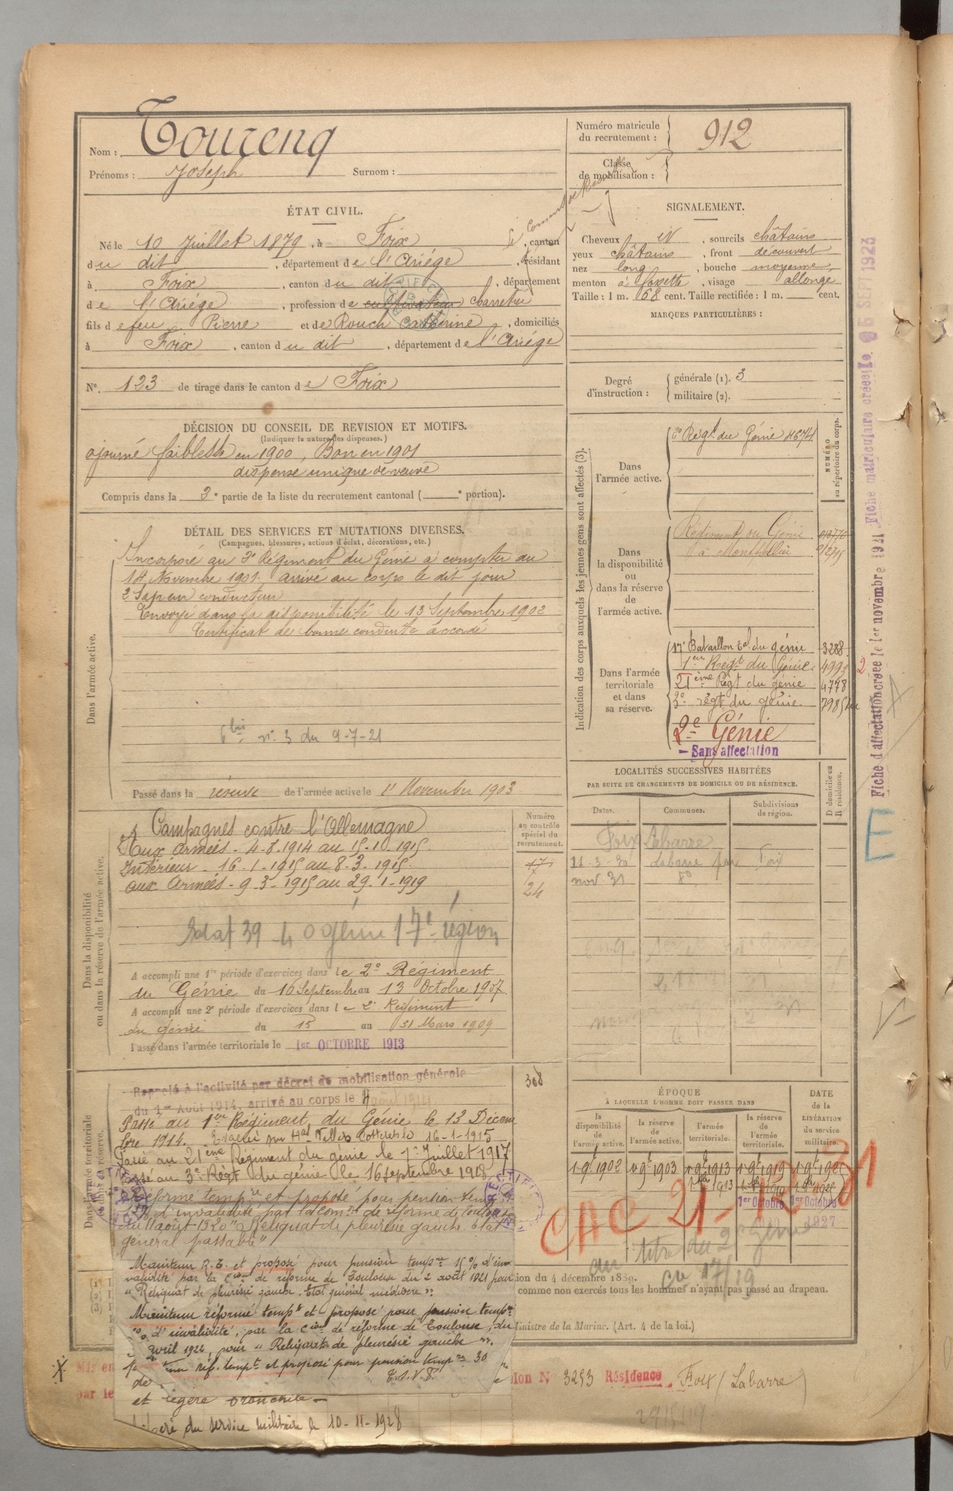 Nom : Tourenq
Prénoms : Joseph Surnom :
Numéro matricule du recrutement : 912
Classe de mobilisation :
ÉTAT CIVIL.
Né le 10 Juillet 1879, à Foix, canton
du dit, département de l'Ariège, résidant
à Foix, canton du dit, département
de l'Ariège, profession de cultivateur
fils de feu Pierre et de Rouch Catherine, domiciliés
à Foix, canton du dit, département de l'Ariège
N° 123 de tirage dans le canton de Foix
SIGNALEMENT.
Cheveux N, sourcils châtains
yeux châtains, front découvert
nez long, bouche moyenne,
menton à fossette, visage allongé
Taille : 1 m. 68 cent. Taille rectifiée : 1 m. cent.
MARQUES PARTICULIÈRES :
Degré d'instruction : générale (1). 3
militaire (2).
DÉCISION DU CONSEIL DE REVISION ET MOTIFS.
(Indiquer la nature des dispenses.)
ajourné faiblesse en 1900, Bon en 1901
dispense unique de veuve
Compris dans la 3e partie de la liste du recrutement cantonal ( e portion).
DÉTAIL DES SERVICES ET MUTATIONS DIVERSES.
(Campagnes, blessures, actions d'éclat, décorations, etc.)
Dans l'armée active.
Incorporé au 2e Régiment du Génie à compter du
14 Novembre 1901, arrivé au corps le dit jour
2e Sapeur conducteur
Envoyé dans la disponibilité le 13 Septembre 1902
Certificat de bonne conduite accordé
n° 3 du 9-7-21
Passé dans la réserve de l'armée active le 1er Novembre 1903
Indication des corps auxquels les jeunes gens sont affectés (3).
NUMÉRO au répertoire du corps.
Dans l'armée active.
2e Régt du Génie
Dans la disponibilité ou dans la réserve de l'armée active.
Régiment du Génie
à Montpellier
Dans l'armée territoriale et dans sa réserve.
17e Bataillon tal du génie 3288
1er Régt du Génie
21ème Régt du génie 4778
3e régt du génie
2e Génie
Sans affectation
Fiche d'affectation créée le 1er novembre 1921
Fiche matriculaire créée le SEPT 1923
LOCALITÉS SUCCESSIVES HABITÉES
PAR SUITE DE CHANGEMENTS DE DOMICILE OU DE RÉSIDENCE.
Dates. Communes. Subdivisions de région. D domicile ou R résidence.
Foix Labarre
Labarre par Foix
nov 31 do
Numéro au contrôle spécial du recrutement.
24
308
Dans la disponibilité ou dans la réserve de l'armée active.
Campagnes contre l'Allemagne
Aux armées - 4-8-1914 au 15-1-1915
Intérieur - 16-1-1915 au 8-3-1915
aux Armées - 9-3-1915 au 29-1-1919
17e région
A accompli une 1re période d'exercices dans le 2e Régiment
du Génie du 16 Septembre au 13 Octobre 1907
A accompli une 2e période d'exercices dans le 2e Régiment
du génie du 15 au 31 Mars 1909
Passé dans l'armée territoriale le 1er OCTOBRE 1913
Rappelé à l'activité par décret de mobilisation générale
du 1er Août 1914, arrivé au corps le 4 août 1914
Passé au 1er Régiment du Génie le 13 Décem
bre 1914. 16-1-1915
Passé au 21ème Régiment du génie le 1er Juillet 1917
Passé au 3e Régt du génie le 16 septembre 1918
Réformé tempre et proposé pour pension temp
d'invalidité par la Comon de réforme de Toulouse
du 11 août 1920 "Reliquat de pleurésie gauche. État
général passable"
Maintenu R.T. et proposé pour pension tempre 15% d'in
validité par la Cion de réforme de Toulouse du 2 août 1921 pour
"Reliquat de pleurésie gauche. État général médiocre".
Maintenu réformé tempt et proposé pour pension tempre
% d'invalidité, par la Cion de réforme de Toulouse, du
avril 1924, pour "Reliquats de pleurésie gauche".
réf. tempt et proposé pour pension tempre 30
de
et légère bronchite
Libéré du service militaire le 10-11-1928
ÉPOQUE
À LAQUELLE L'HOMME DOIT PASSER DANS
la disponibilité de l'armée active. la réserve de l'armée active. l'armée territoriale. la réserve de l'armée territoriale.
DATE de la LIBÉRATION du service militaire.
1-9bre 1902 1-9bre 1903 1-9bre 1913 1-9bre 1919
1er Octobre 1927
CAC 21-12-31
au titre du 2e génie
ion du 4 décembre 1889.
comme non exercés tous les hommes n'ayant pas passé au drapeau.
Ministre de la Marine. (Art. 4 de la loi.)
ion N° 3253 Résidence Foix/Labarre